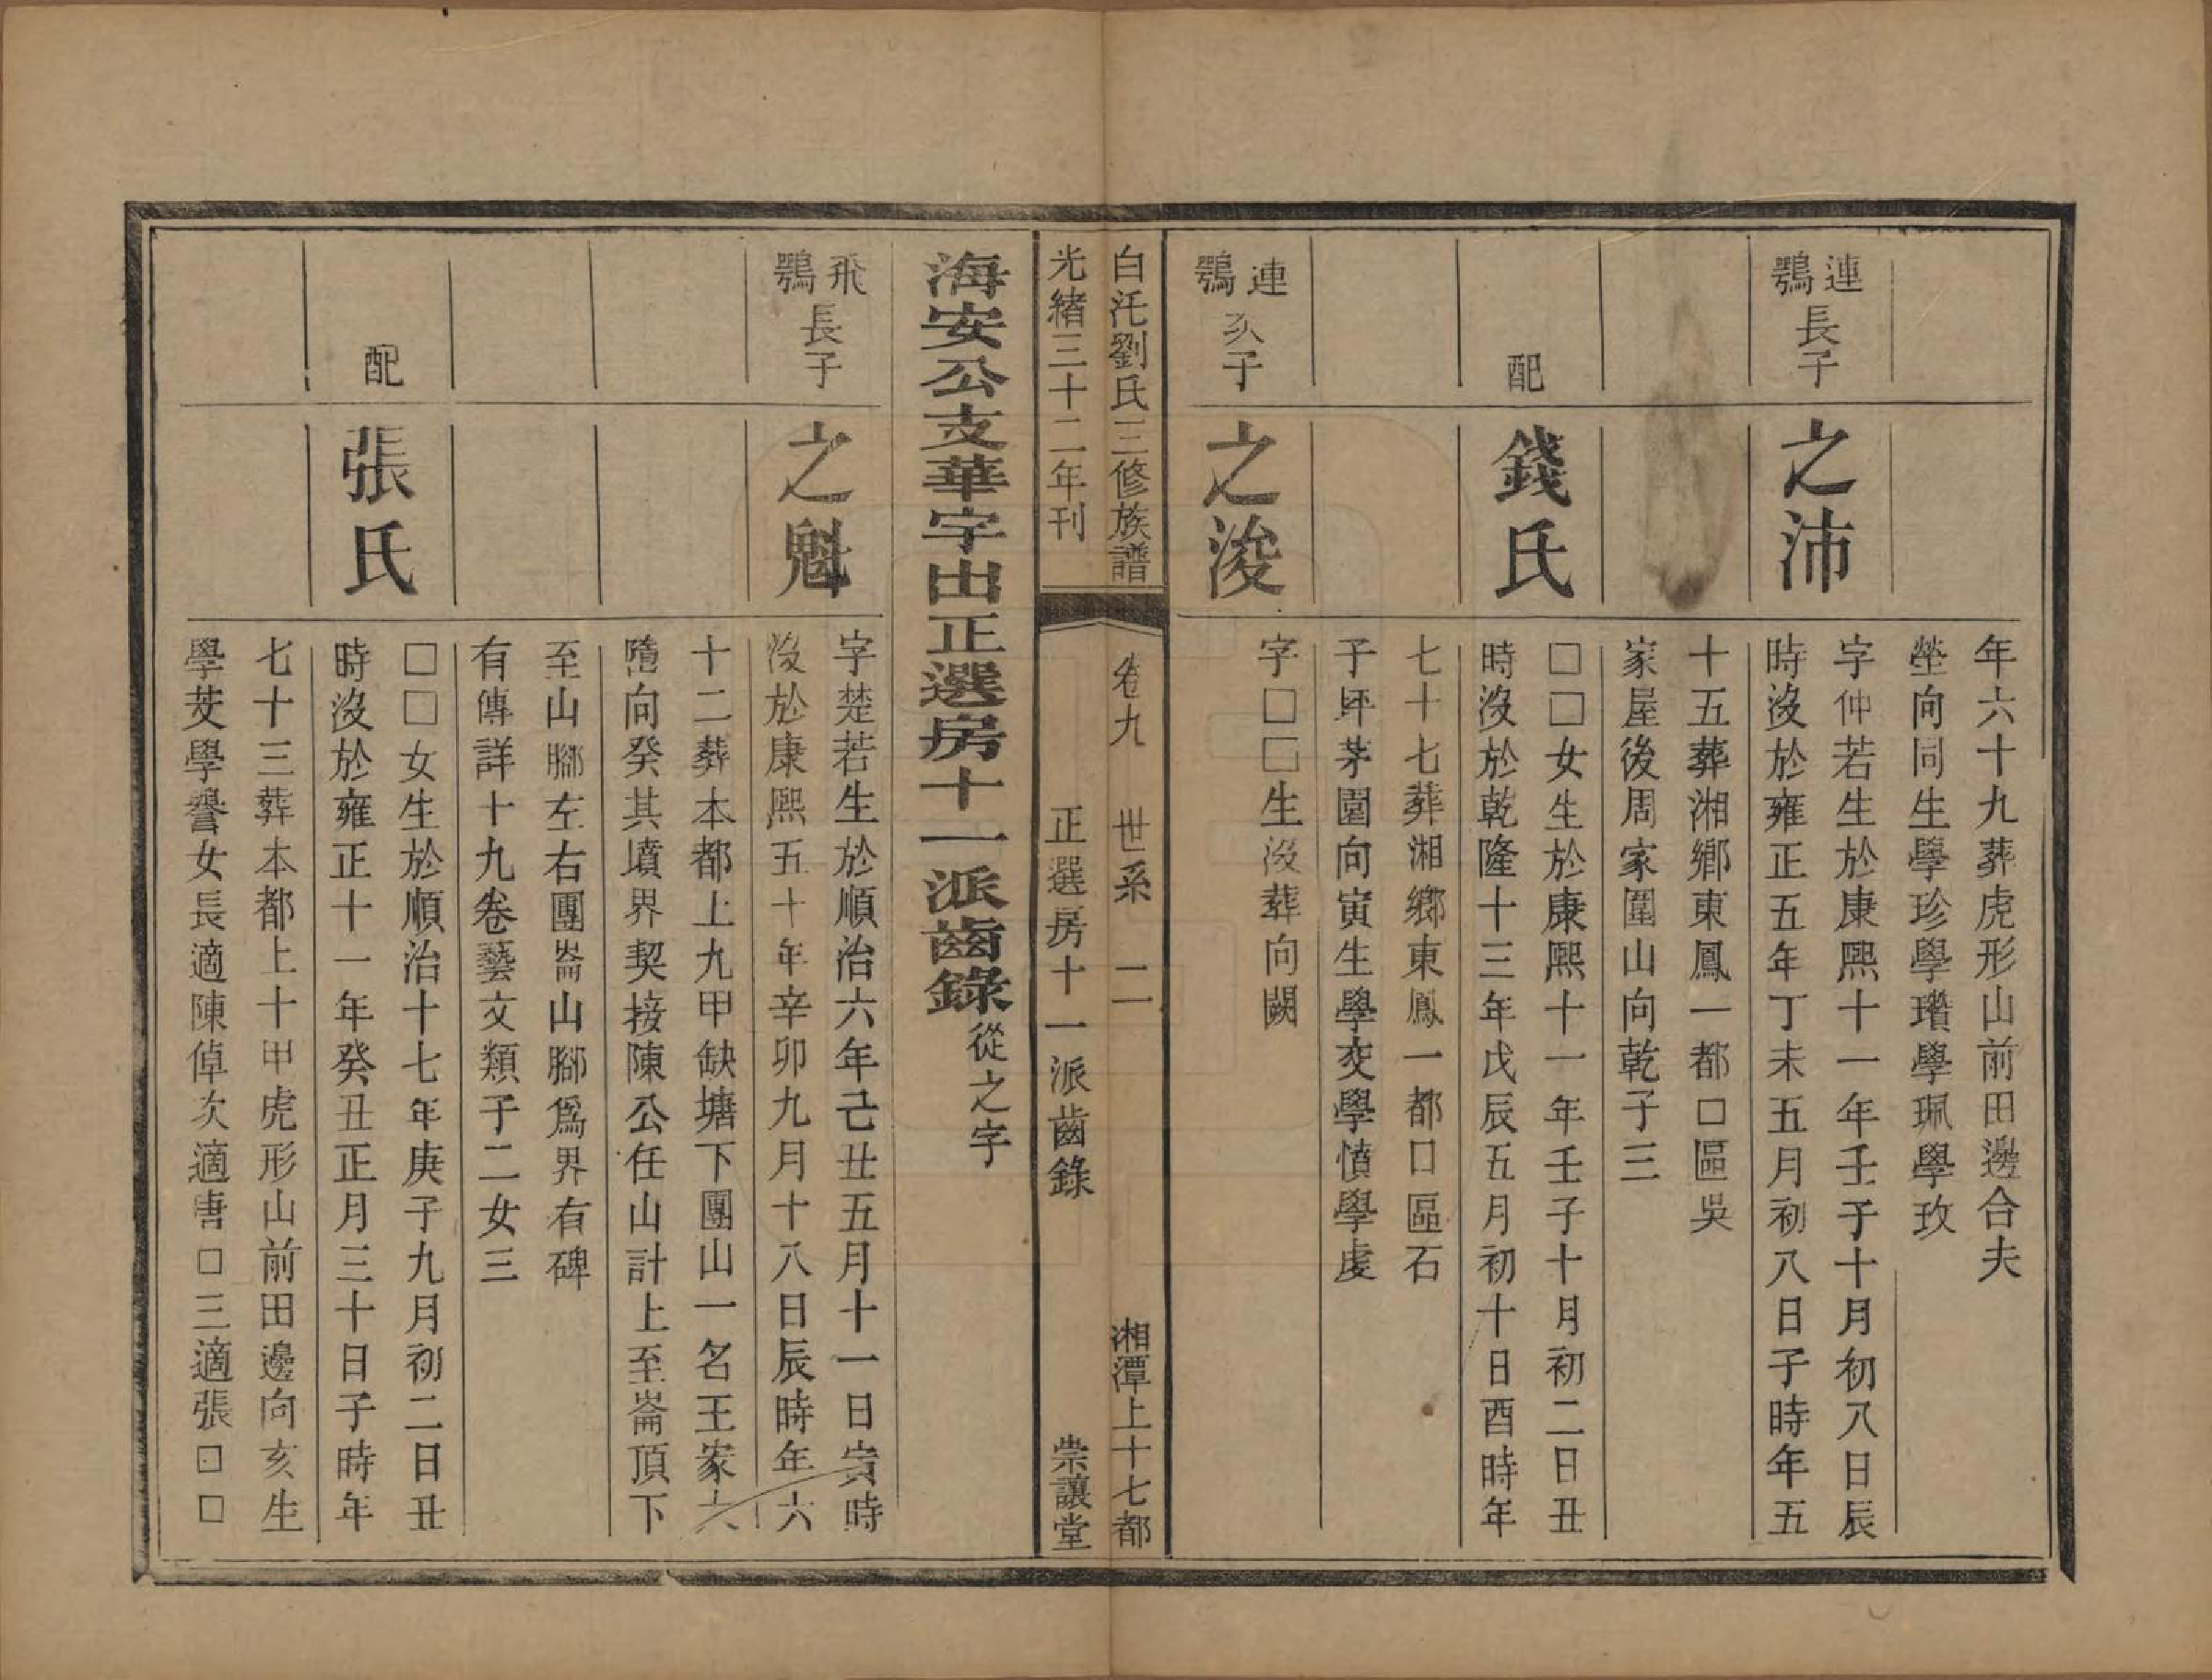 年六十九葬虎形山前田邊合夫
塋向同生學珍學瓚學珮學玫
連鶚長子
之沛
字仲若生於康熙十一年壬子十月初八日辰
時沒於雍正五年丁未五月初八日子時年五
十五葬湘鄉東鳳一都口區吳
家屋後周家圍山向乾子三
配
錢氏
□□女生於康熙十一年壬子十月初二日丑
時沒於乾隆十三年戊辰五月初十日酉時年
七十七葬湘鄉東鳳一都口區石
子坪茅園向寅生學交學慎學虔
連鶚次子
之浚
字□□生沒葬向闕
白汑劉氏三修族譜
卷九 世系 二
湘潭上十七都
光緒三十二年刊
正選房十一派齒錄
崇讓堂
海安公支華字出正選房十一派齒錄從之字
飛鶚長子
之魁
字楚若生於順治六年己丑五月十一日寅時
沒於康熙五十年辛卯九月十八日辰時年六
十二葬本都上九甲缺塘下團山一名王家六
隋向癸其墳界契接陳公任山計上至崙頂下
至山腳左右團崙山腳爲界有碑
有傳詳十九卷藝文類子二女三
配
張氏
□□女生於順治十七年庚子九月初二日丑
時沒於雍正十一年癸丑正月三十日子時年
七十三葬本都上十甲虎形山前田邊向亥生
學芨學譽女長適陳倬次適唐□三適張□□